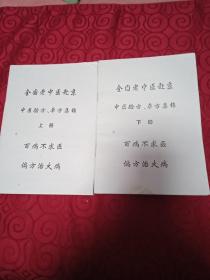 全国老中医赴京
中医验方、单方集锦
上册
百病不求医
偏方治大病
全国老中医赴京
中医验方、单方集锦
下册
百病不求医
偏方治大病